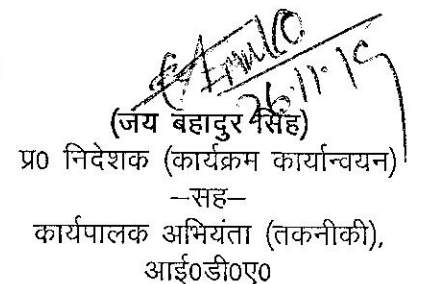 26.11.19
(जय बहादुर सिंह)
प्र0 निदेशक (कार्यक्रम कार्यान्वयन)
–सह–
कार्यपालक अभियंता (तकनीकी),
आई0डी0ए0